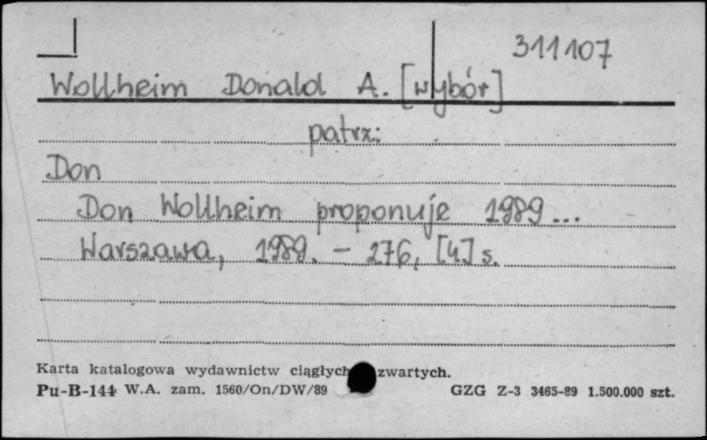 311107
Wollheim Donald A. [wybór]
patrz:
Don
Don Wollheim proponuje 1989...
Warszawa, 1989. - 276, [4] s.
Karta katalogowa wydawnictw ciągłych zwartych.
Pu-B-144 W.A. zam. 1560/On/DW/89 GZG Z-3 3465-89 1.500.000 szt.